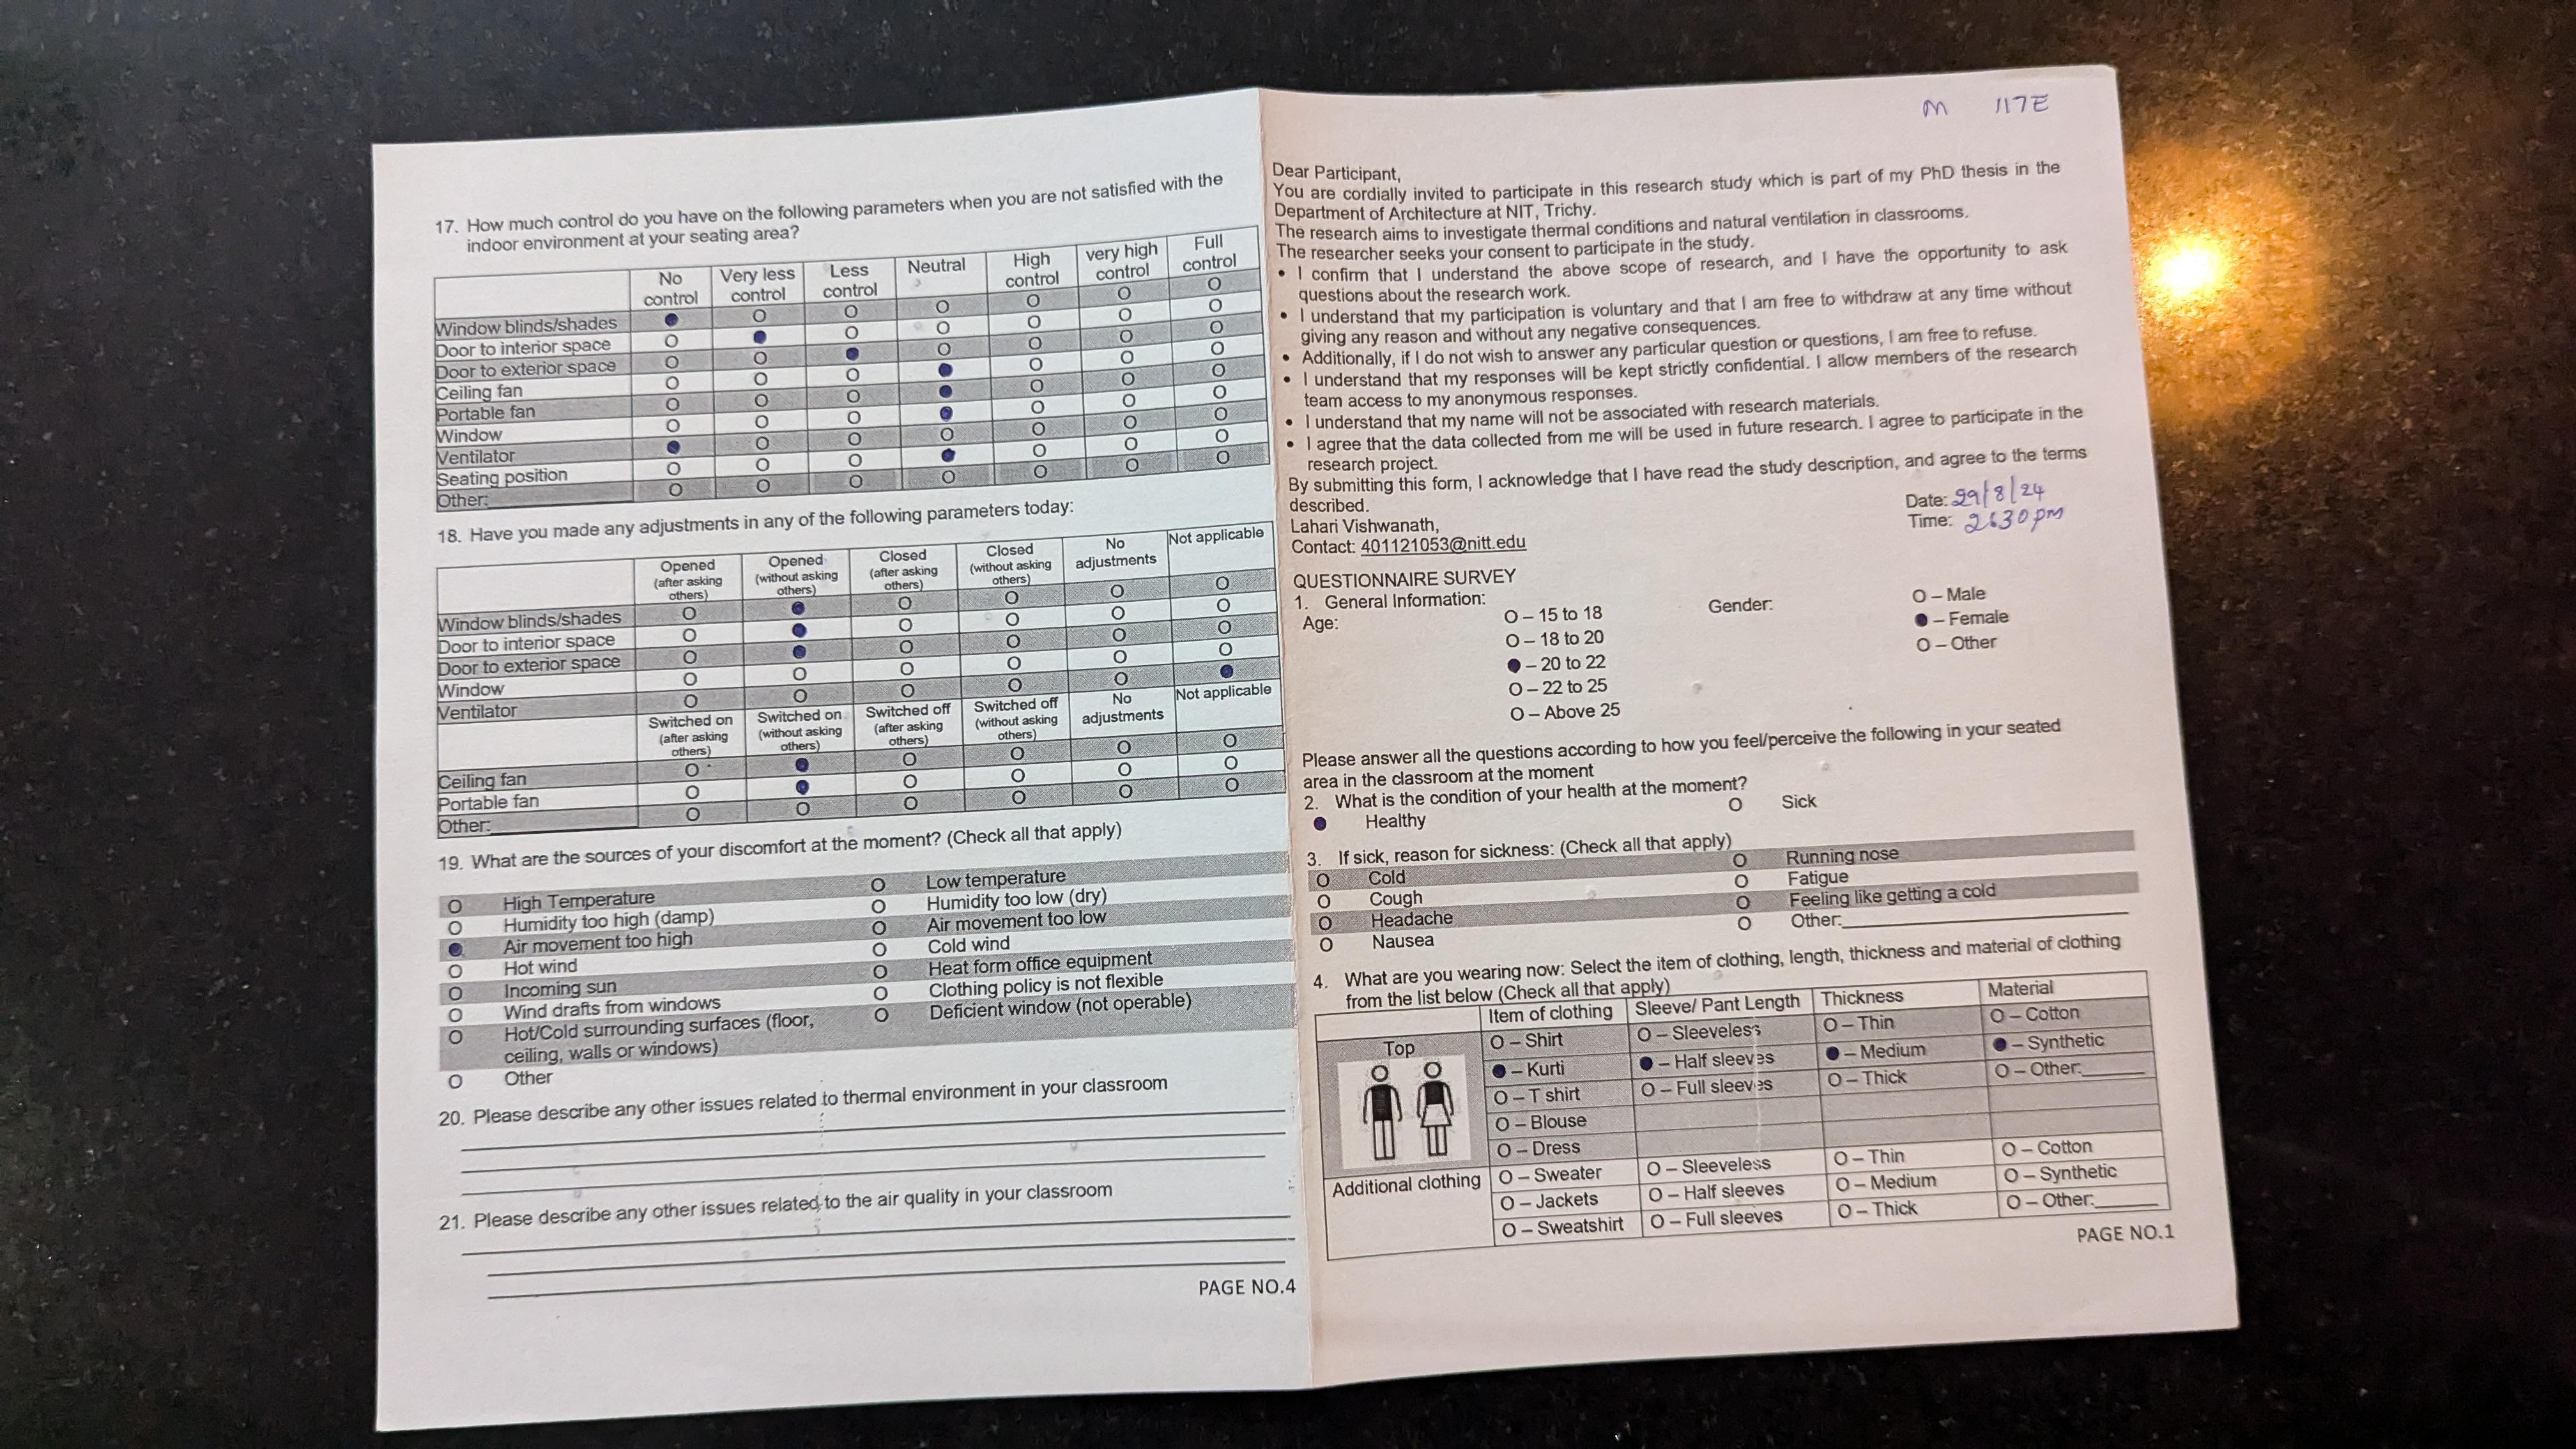 17. How much control do you have on the following parameters when you are not satisfied with the
indoor environment at your seating area?
No control Very less control Less control Neutral High control very high control Full control
Window blinds/shades ● O O O O O O
Door to interior space O ● O O O O O
Door to exterior space O O ● O O O O
Ceiling fan O O O ● O O O
Portable fan O O O ● O O O
Window O O O ● O O O
Ventilator ● O O O O O O
Seating position O O O ● O O O
Other:________ O O O O O O O
18. Have you made any adjustments in any of the following parameters today:
Opened (after asking others) Opened (without asking others) Closed (after asking others) Closed (without asking others) No adjustments Not applicable
Window blinds/shades O ● O O O O
Door to interior space O ● O O O O
Door to exterior space O ● O O O O
Window O O O O O O
Ventilator O O O O O ●
Switched on (after asking others) Switched on (without asking others) Switched off (after asking others) Switched off (without asking others) No adjustments Not applicable
Ceiling fan O ● O O O O
Portable fan O ● O O O O
Other:________ O O O O O O
19. What are the sources of your discomfort at the moment? (Check all that apply)
O High Temperature O Low temperature
O Humidity too high (damp) O Humidity too low (dry)
● Air movement too high O Air movement too low
O Hot wind O Cold wind
O Incoming sun O Heat form office equipment
O Wind drafts from windows O Clothing policy is not flexible
O Hot/Cold surrounding surfaces (floor, O Deficient window (not operable)
ceiling, walls or windows)
O Other
20. Please describe any other issues related to thermal environment in your classroom
21. Please describe any other issues related to the air quality in your classroom
PAGE NO.4
M 117E
Dear Participant,
You are cordially invited to participate in this research study which is part of my PhD thesis in the
Department of Architecture at NIT, Trichy.
The research aims to investigate thermal conditions and natural ventilation in classrooms.
The researcher seeks your consent to participate in the study.
• I confirm that I understand the above scope of research, and I have the opportunity to ask
questions about the research work.
• I understand that my participation is voluntary and that I am free to withdraw at any time without
giving any reason and without any negative consequences.
• Additionally, if I do not wish to answer any particular question or questions, I am free to refuse.
• I understand that my responses will be kept strictly confidential. I allow members of the research
team access to my anonymous responses.
• I understand that my name will not be associated with research materials.
• I agree that the data collected from me will be used in future research. I agree to participate in the
research project.
By submitting this form, I acknowledge that I have read the study description, and agree to the terms
described.
Date: 29/8/24
Lahari Vishwanath,
Time: 2:30 pm
Contact: 401121053@nitt.edu
QUESTIONNAIRE SURVEY
1. General Information:
Age: O – 15 to 18 Gender: O – Male
O – 18 to 20 ● – Female
● – 20 to 22 O – Other
O – 22 to 25
O – Above 25
Please answer all the questions according to how you feel/perceive the following in your seated
area in the classroom at the moment
2. What is the condition of your health at the moment?
● Healthy O Sick
3. If sick, reason for sickness: (Check all that apply)
O Cold O Running nose
O Cough O Fatigue
O Headache O Feeling like getting a cold
O Nausea O Other:________
4. What are you wearing now: Select the item of clothing, length, thickness and material of clothing
from the list below (Check all that apply)
Item of clothing Sleeve/ Pant Length Thickness Material
Top O – Shirt O – Sleeveless O – Thin O – Cotton
● – Kurti ● – Half sleeves ● – Medium ● – Synthetic
O – T shirt O – Full sleeves O – Thick O – Other:________
O – Blouse
O – Dress
Additional clothing O – Sweater O – Sleeveless O – Thin O – Cotton
O – Jackets O – Half sleeves O – Medium O – Synthetic
O – Sweatshirt O – Full sleeves O – Thick O – Other:________
PAGE NO.1